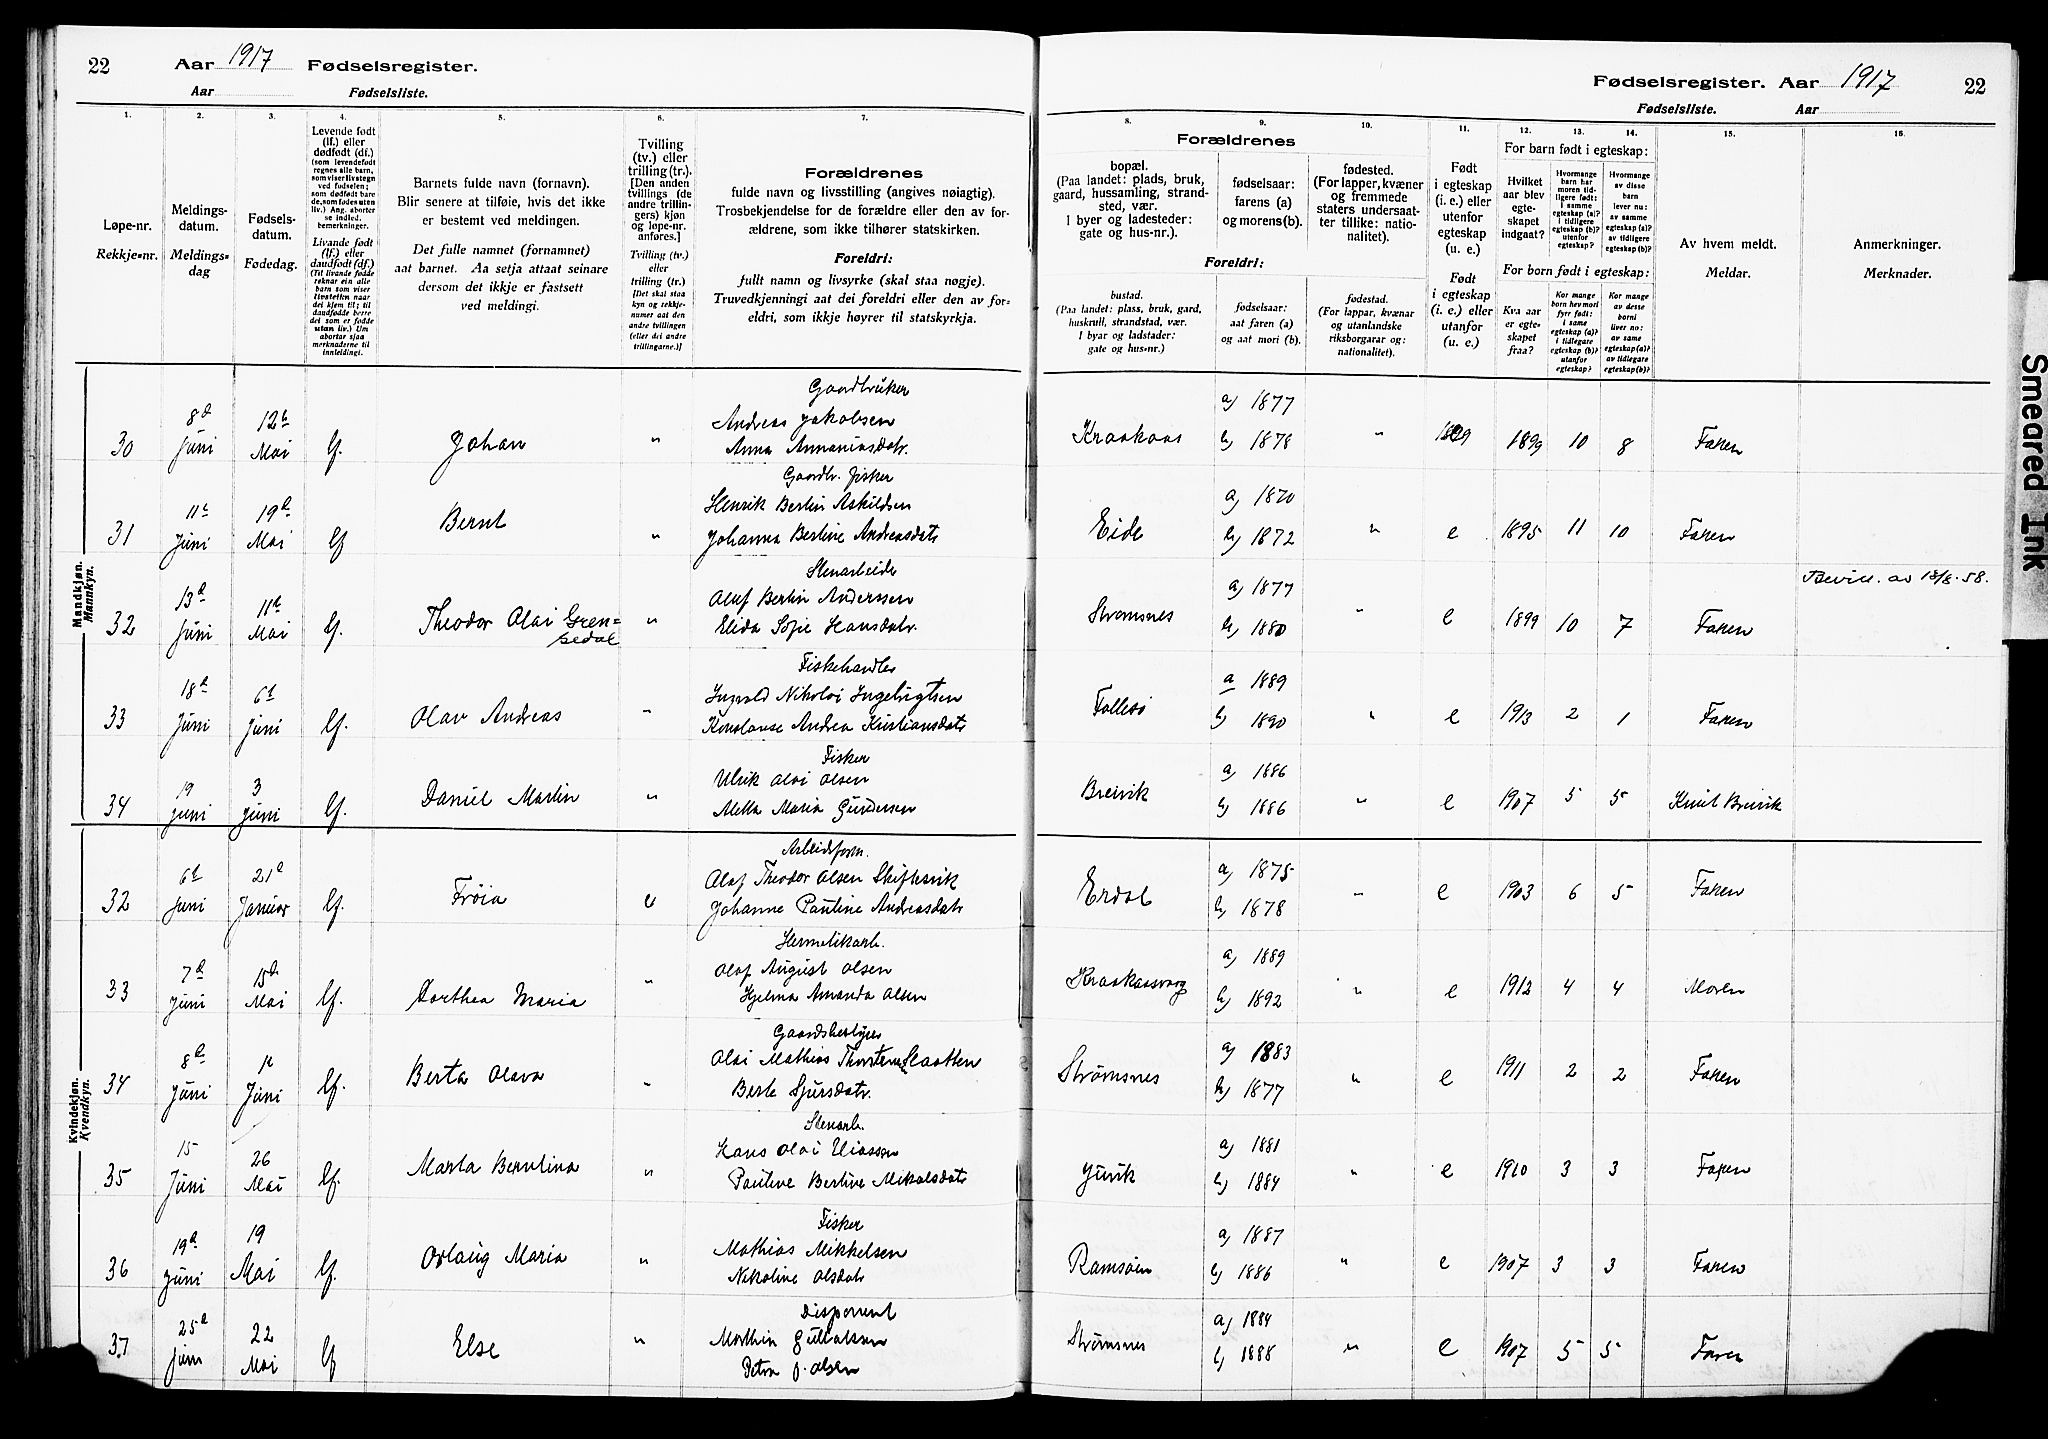 22 Aar 1917 Fødselsregister.
Aar Fødselsliste.
Fødselsregister. Aar 1917 22
Fødselsliste. Aar
1. 2. 3. 4. 5. 6. 7. 8. 9. 10. 11. 12. 13. 14. 15. 16.
Løpe-nr.
Rekkje-nr.
Meldings-
datum.
Meldings-
dag
Fødsels-
datum.
Fødedag.
Levende født
(lf.) eller
dødfødt (df.)
(som levendefødt
regnes alle barn,
som viser livstegn
ved fødselen;
som dødfødt bare
de, som fødes uten
liv.) Ang. aborter
se indled.
bemerkninger.
Livande født
(lf.) eller
daudfødt (df.)
Barnets fulde navn (fornavn).
Blir senere at tilføie, hvis det ikke
er bestemt ved meldingen.
Det fulle namnet (fornamnet)
aat barnet. Aa setja attaat seinare
dersom det ikkje er fastsett
ved meldingi.
Tvilling
(tv.) eller
trilling (tr.)
[Den anden
tvillings (de
andre trillin-
gers) kjøn
og løpe-nr.
anføres.]
Tvilling (tv.)
eller
trilling (tr.)
[Det skal staa
kyn og rekkje-
numer aat den
andre tvillingen
(eller dei andre
trillingarne.)]
Forældrenes
fulde navn og livsstilling (angives nøiagtig).
Trosbekjendelse for de forældre eller den av for-
ældrene, som ikke tilhører statskirken.
Foreldri:
fullt namn og livsyrke (skal staa nøgje).
Truvedkjenningi aat dei foreldri eller den av for-
eldri, som ikkje høyrer til statskyrkja.
Forældrenes
bopæl.
(Paa landet: plads, bruk,
gaard, hussamling, strand-
sted, vær.
I byer og ladesteder:
gate og hus-nr.).
fødselsaar:
farens (a)
og morens (b).
fødested.
(For lapper, kvæner
og fremmede
staters undersaat-
ter tillike: natio-
nalitet).
Foreldri:
bustad.
(Paa landet: plass, bruk, gard,
huskrull, strandstad, vær.
I byar og ladstader:
gate og hus-nr.)
fødselsaar:
aat faren (a)
og aat mori (b).
fødestad.
(For lappar, kvæner
og utanlandske
riksborgarar og:
nationalitet).
Født
i egteskap
(i. e.) eller
utenfor
egteskap
(u. e.)
Født
i egteskap
(i. e.) eller
utanfor
(u. e.)
For barn født i egteskap:
Hvilket
aar blev
egte-
skapet
indgaat?
Hvormange
barn har
moren tid-
ligere født:
i samme
egteskap (a)?
i tidligere
egteskap (b)?
utenfor
egteskap?
Hvormange
av disse
barn
lever nu:
av samme
egteskap (a)?
av tidligere
egteskap (b)?
For born født i egteskap:
Kva aar
er egte-
skapet
fraa?
Kor mange
born hev mori
fyrr født:
i same
egteskap (a)?
i tidlegare
egteskap (b)?
utanfor
egteskap?
Kor mange
av desse
borni
liver no:
av same
egteskap (a)?
av tidlegare
egteskap (b)?
Av hvem meldt.
Meldar.
Anmerkninger.
Merknader.
Mandkjøn.
Mannkyn.
Gaardbruker
30 8d Juni 12te Mai lf. Johan " Andreas Jakobsen Kraakaas a) 1877 " 1899 10 8 Faren
Anna Annaniasdatr. b) 1878
Gaardbr. fisker
31 11te Juni 19de Mai lf Bernt " Henrik Bertin Askildsen Eide a) 1870 " e 1895 11 10 Faren
Johanna Bertine Andreasdatr b) 1872
Stenarbeider
32 13de Juni 11te Mai lf. Theodor Olai Gren- " Oluf Bertin Anderssen Strømsnes a) 1877 " e 1899 10 7 Faren Bevill. av 18/8.58.
sedal Elida Sofie Hansdatr. b) 1880
Fiskehandler
33 18de Juni 6te Juni lf. Olav Andreas " Ingvald Nikolai Ingebrigtsen Follesø a 1889 " e 1913 2 1 Faren
Konstanse Andrea Kristiansdatr b) 1890
Fisker
34 19 juni 3 juni lf. Daniel Martin " Ulrik Olai Olsen Breivik a) 1886 " e 1907 5 5 Knut Breivik
Maria Gundersen b) 1886
Kvindekjøn.
Kvendkyn.
Arbeidsform.
32 6te Juni 21de Januar lf. Frøia Olaf Theodor Olsen Skiftesvik Erdal a) 1875 " e 1903 6 5 Faren
Johanne Pauline Andreasdatr b) 1878
Hermetikarb.
33 7de juni 15de Mai lf. Dorthea Maria " Olaf August Olsen Kraakaasvaag a) 1889 " e 1912 4 4 Moren
Hjelma Amanda Olsen b) 1892
Gaardsbestyrer
34 8de Juni 1te Juni lf. Berta Olava " Olai Mathias Slaatten Strømsnes a) 1883 " e 1911 2 2 Faren
Berte Sjursdatr. b) 1877
Stenarb.
35 15 Juni 26 Mai lf. Marta Berntina " Hans Olai Juvik a) 1881 " e 1910 3 3 Faren
Pauline Bertine Mikalsdatr b) 1884
Fisker
36 19de juni 19 Mai lf. Orlaug Maria " Mathias Mikkelsen Ramsøen a) 1887 " e 1907 3 3 Faren
Nikoline Olsdatr b) 1886
Disponent
37 25de juni 22 Mai lf Else " Marthin Gullaksen Strømsnes a) 1884 " e 1907 5 5 Faren
Petra J. Olsen b) 1888
Smeared Ink